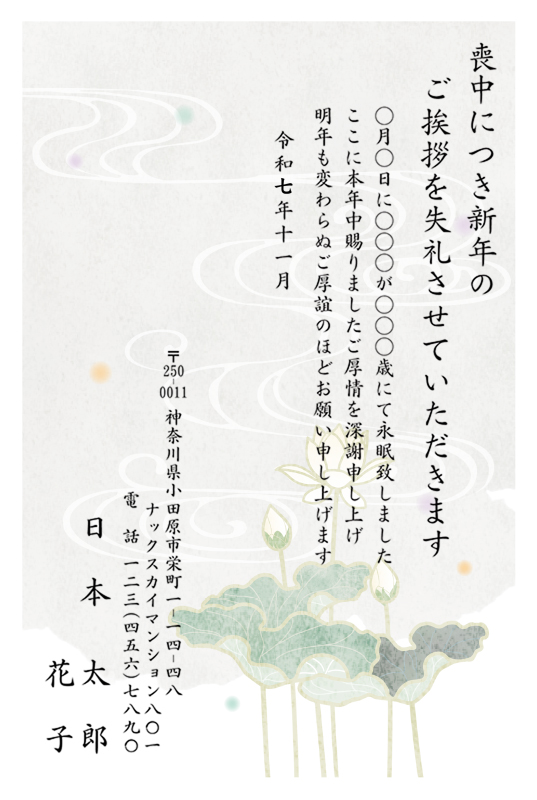 喪中につき新年の
ご挨拶を失礼させていただきます
〇月〇日に〇〇〇が〇〇〇歳にて永眠致しました
ここに本年中賜りましたご厚情を深謝申し上げ
明年も変わらぬご厚誼のほどお願い申し上げます
令和七年十一月
〒250-0011
神奈川県小田原市栄町一-一四-四八
ナックスカイマンション八〇一
電話 一二三(四五六)七八九〇
日本 太郎
花子